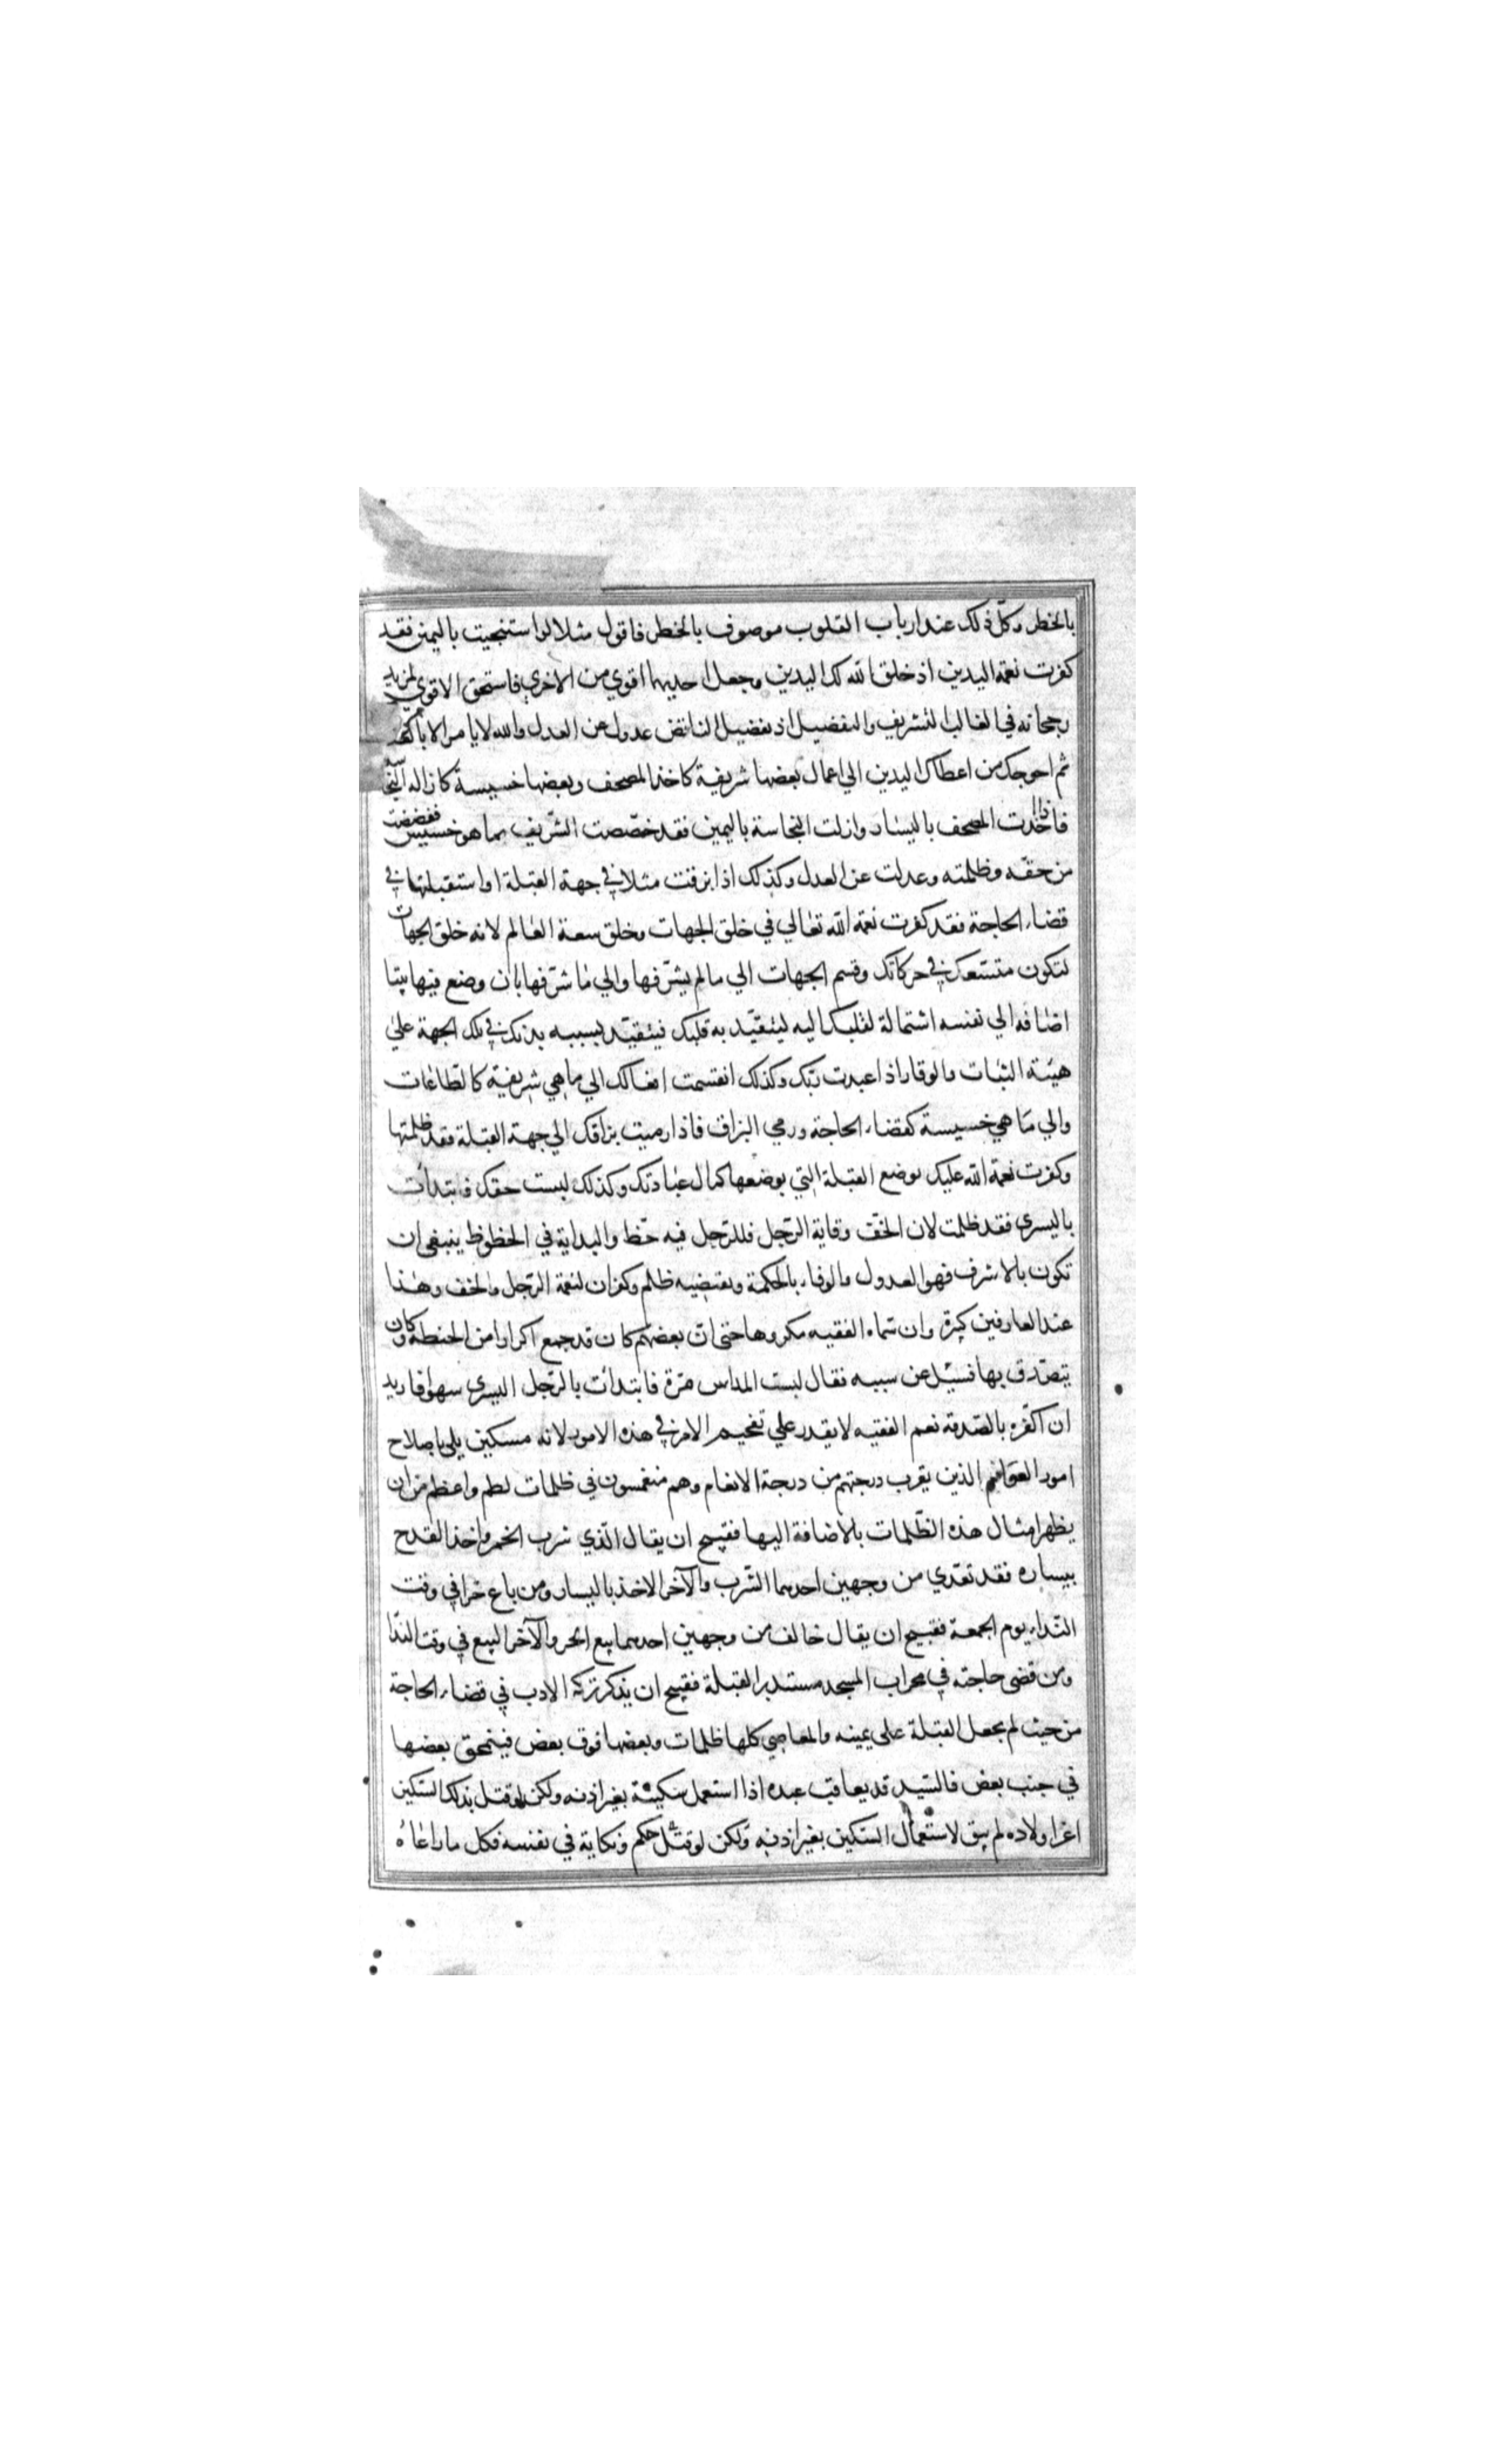 بالخطر وكل ذلك عند ارباب القلوب موصوف بالخطر فاقول مثلا لو استنجيت باليمين فقد
كفرت نعمة اليدين اذ خلق الله لك اليدين وجعل احديهما اقوي من الاخري فاستحق الاقوي لمزيد
رجحانه في الغالب التشريف والتفضيل اذ تفضيل الناقص عدول عن العدل والله لا يامر الا
ثم احوجك من اعطاك اليدين الي اعمال بعضها شريفة كاخذ المصحف وبعضها خسيسة كازالة
فاذا اخذت المصحف باليسار وازلت النجاسة باليمين فقد خصصت الشريف بما هو خسيس فغضضت
من حقه وظلمته وعدلت عن العدل وكذلك اذا بزقت مثلا في جهة القبلة او استقبلتها في
قضاء الحاجة فقد كفرت نعمة الله تعالي في خلق الجهات وخلق سعة العالم لانه خلق الجهات
لتكون متسعك في حركاتك وقسم الجهات الي ما لم يشرفها والي ما شرفها بان وضع فيها بيتا
اضافه الي نفسه اشتمالة لقلبك اليه ليتقيد به قلبك فيتقيد بسببه بدنك في تلك الجهة علي
هيئة الثبات والوقار اذا عبدت ربك وكذلك انقسمت افعالك الي ما هي شريفة كالطاعات
والي ما هي خسيسة كقضاء الحاجة ورمي البزاق فاذا رميت بزاقك الي جهة القبلة فقد ظلمتها
وكفرت نعمة الله عليك بوضع القبلة التي بوضعها كمال عبادتك وكذلك لبست خفك فابتدأت
باليسري فقد ظلمت لان الخف وقاية الرجل فللرجل فيه حظ والبداية في الحظوظ ينبغي ان
تكون بالاشرف فهو العدول والوفاء بالحكمة ونقيضه ظلم وكفران لنعمة الرجل والخف وهذا
عند العارفين كبيرة وان سماه الفقيه مكروها حتي ان بعضهم كان قد جمع اكرارا من الحنطة وكان
يتصدق بها فسئل عن سببه فقال لبست المداس مرة فابتدأت بالرجل اليسري سهوا فاريد
ان اكفره بالصدقة نعم الفقيه لا يقدر علي تفخيم الامر في هذه الامور لانه مسكين بلي باصلاح
امور العوام الذين يقرب درجتهم من درجة الانعام وهم منغمسون في ظلمات اطم واعظم من ان
يظهر امثال هذه الظلمات بالاضافة اليها فقبيح ان يقال الذي شرب الخمر واخذ القدح
بيساره فقد تعدي من وجهين احدهما الشرب والآخر الاخذ باليسار ومن باع خمرا في وقت
النداء يوم الجمعة فقبيح ان يقال خالف من وجهين احدهما بيع الخمر والآخر البيع في وقت الندا
ومن قضي حاجته في محراب المسجد مستدبر القبلة فقبيح ان يذكر تركه الادب في قضاء الحاجة
من حيث لم يجعل القبلة علي يمينه والمعاصي كلها ظلمات وبعضها فوق بعض فينمحق بعضها
في جنب بعض فالسيد قد يعاقب عبده اذا استعمل سكينه بغير اذنه ولكن لو قتل بذلك السكين
اعز اولاده لم يبق لاستعمال السكين بغير اذنه ولكن لو قتل حكم ونكاية في نفسه فكل ما راعاه